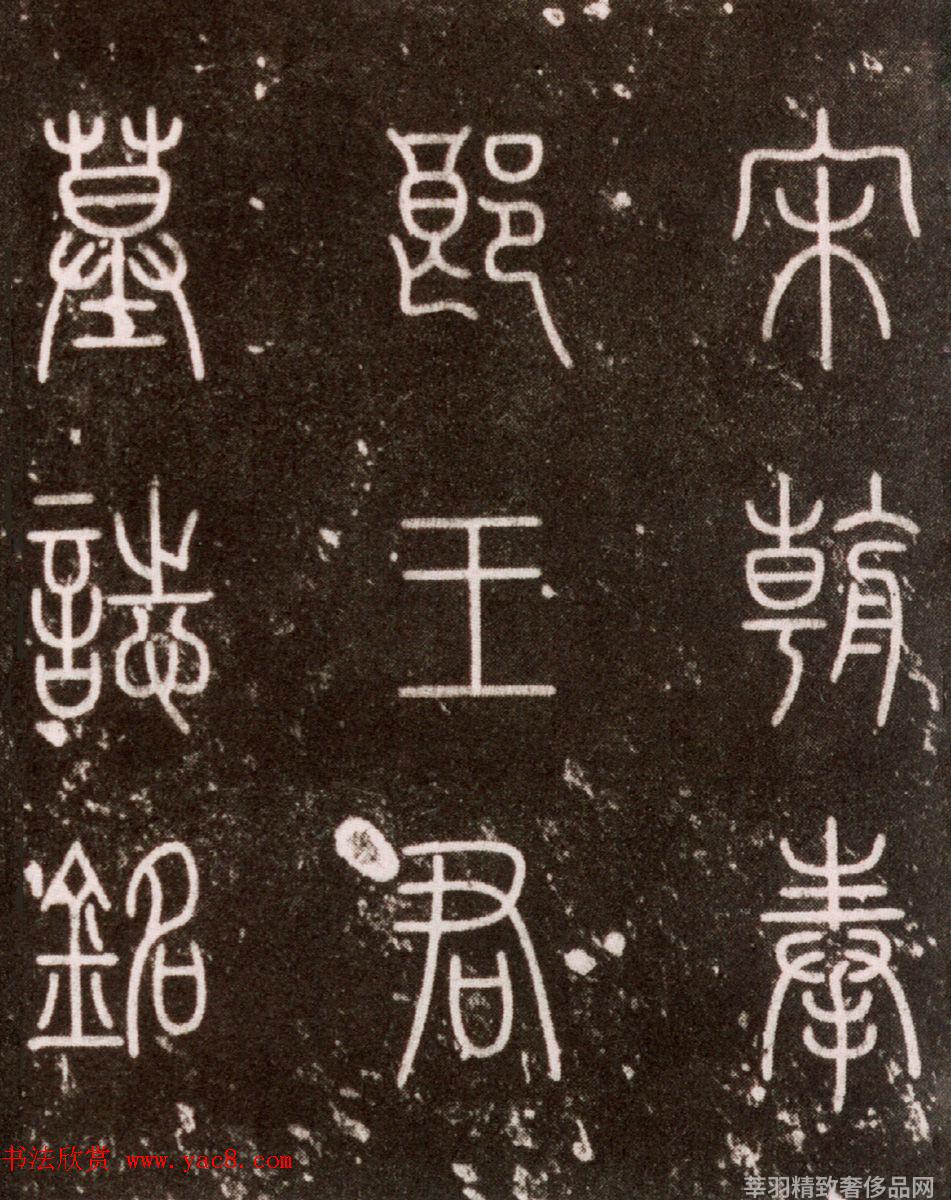 宋朝奉
郎王君
墓誌銘
书法欣赏 www.yac8.com
莘羽精致奢侈品网